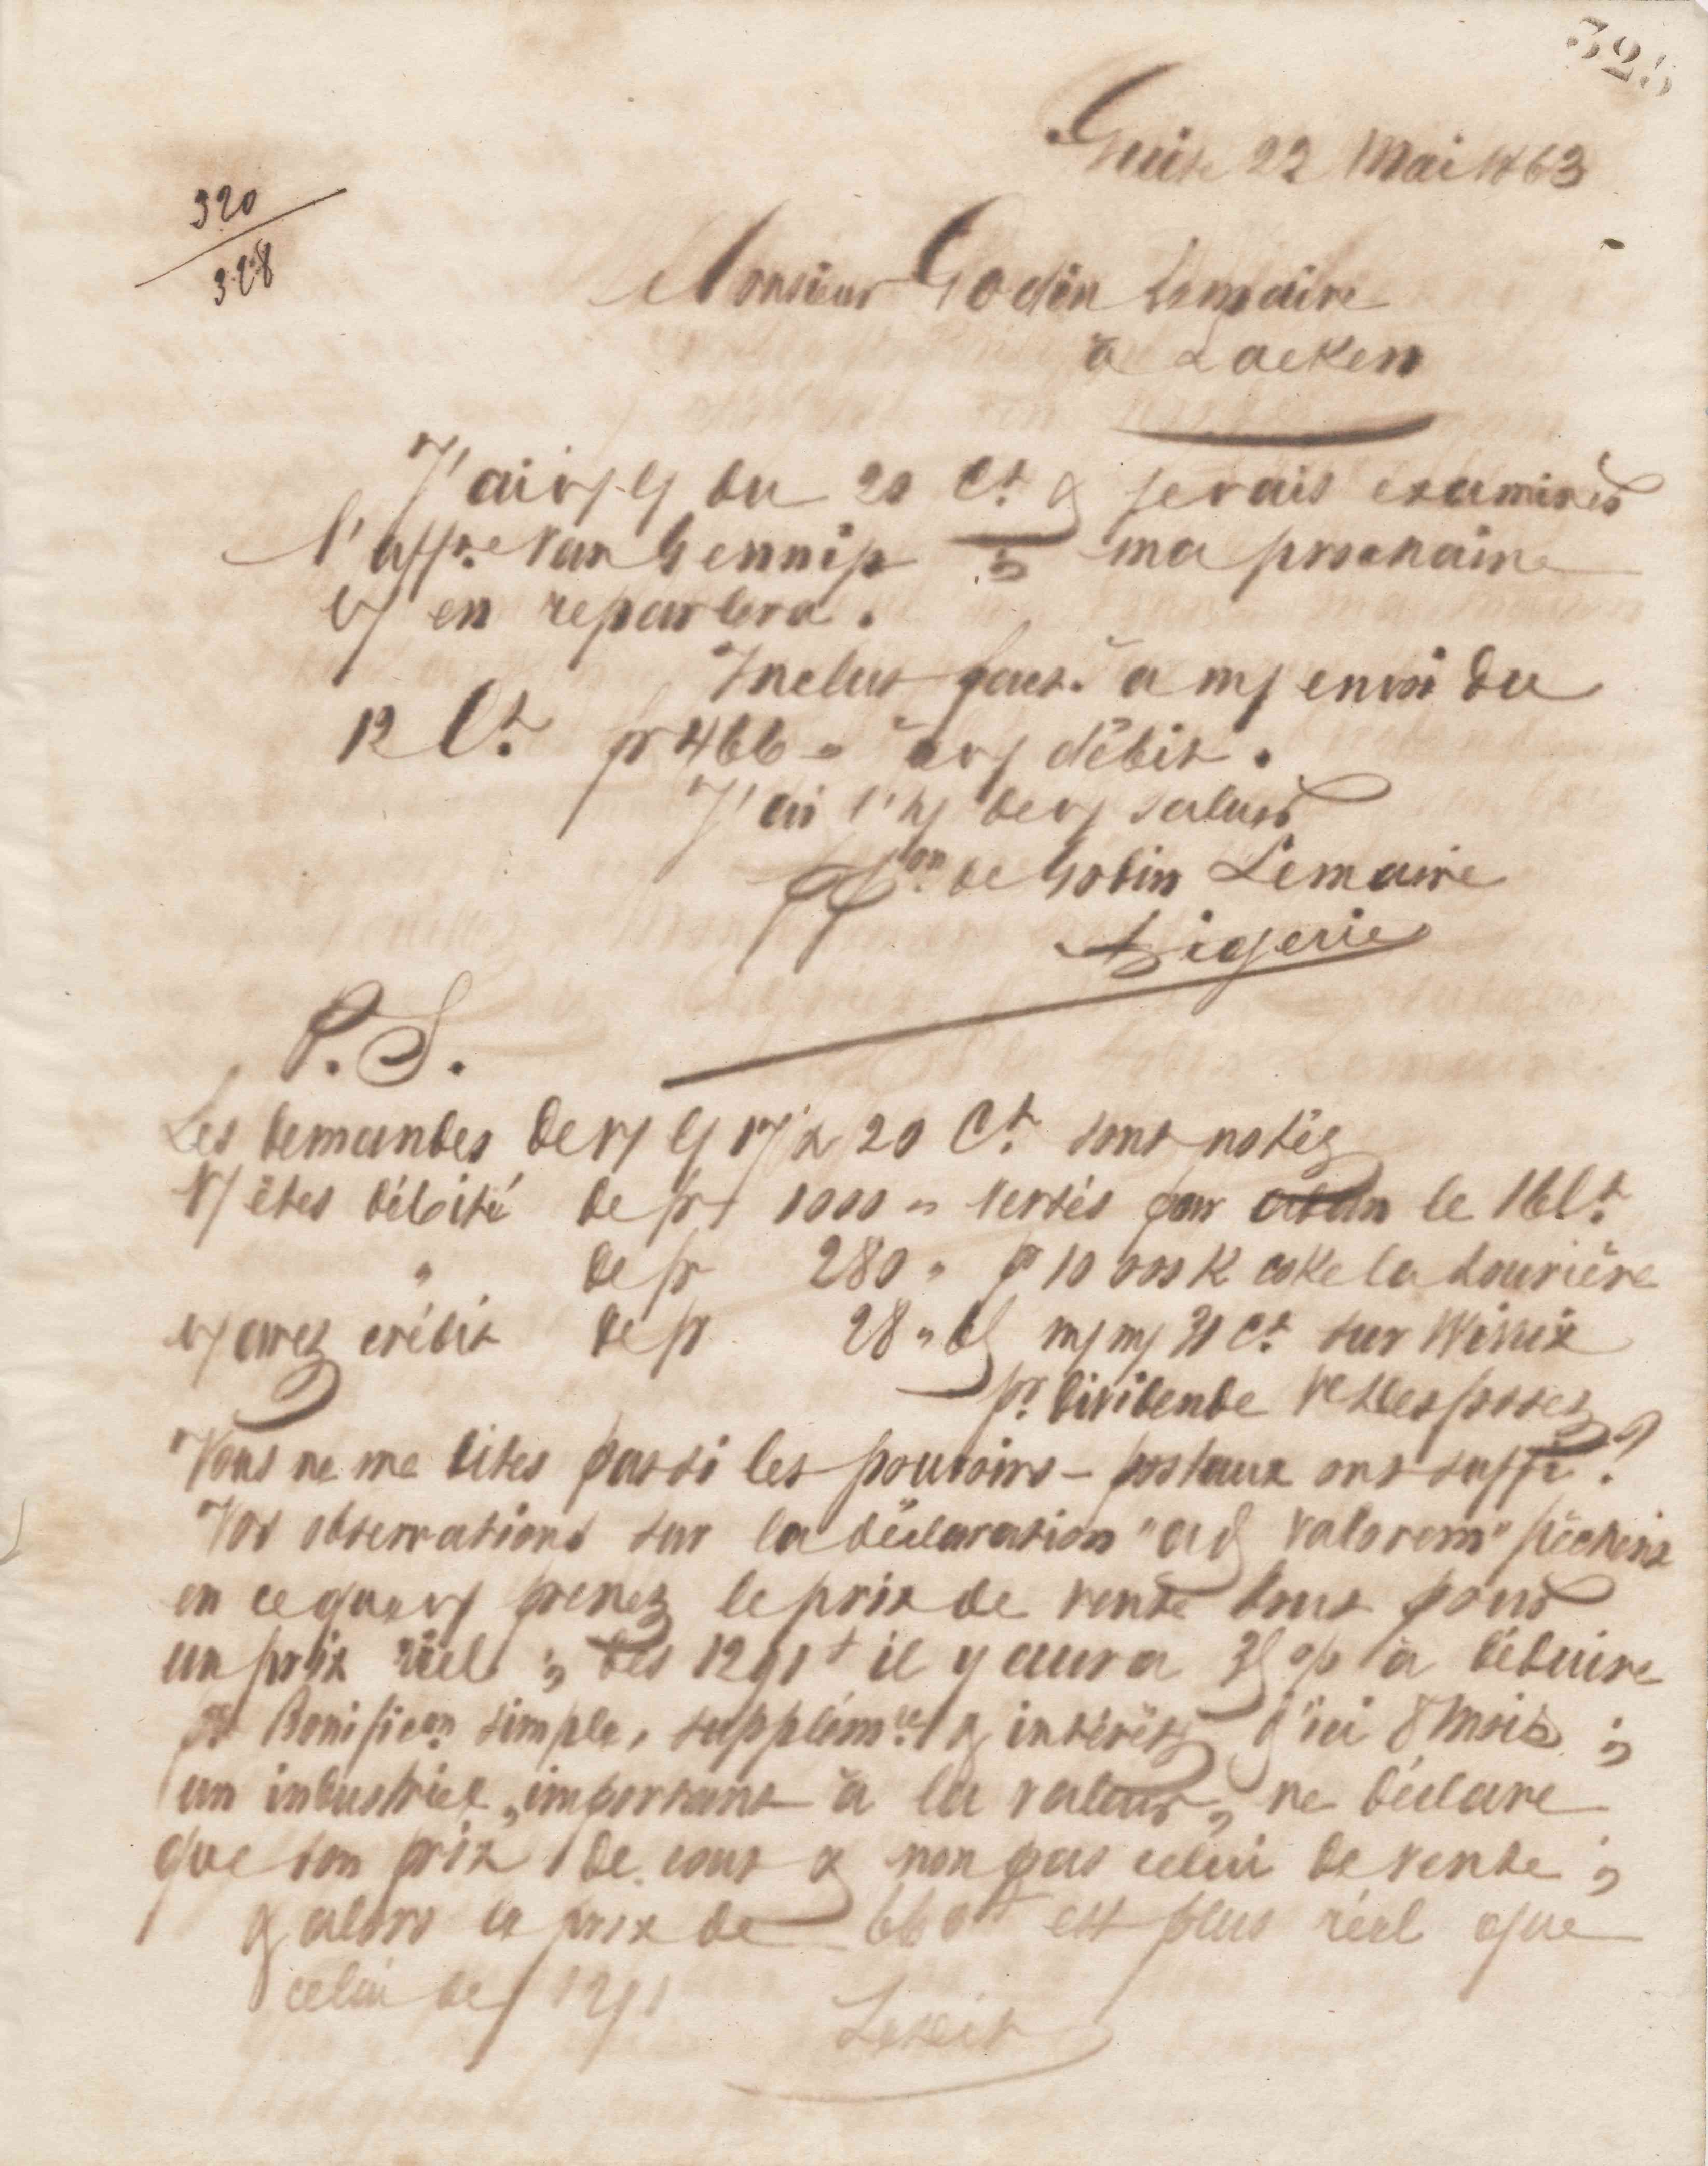 325
Guise 22 Mai 1863
320
328
Monsieur Godin Lemaire
à Laeken
J'ai v/ l/ du 20 Ct & je vais examiner
l'affre Van Gennip ; ma prochaine
v/ en reparlera.
Inclus fact. à m/ envoi du
12 Ct. fr 466 " à v/ débit.
J'ai l'h/ de v/ saluer
ppon de Godin Lemaire
P.S.
Les demandes de v/ l/ 20 Ct sont notées
V/ êtes débité de fr 1000 " versés par le 16 Ct.
" de fr 280 " p 10 000 K coke la Louvière
v/ avez crédit de fr 28 " Ct sur
pr dividende
Vous ne me dites pas si les pouvoirs - postaux ont suffi ?
Vos observations sur la déclaration "ad valorem" pèchent
en ce que v/ prenez le prix de vente brut pour
un prix réel ; des 1291t il y aura à déduire
pr Bonificon simple, supplémre & intérêts d'ici 8 mois ;
un industriel, important à la valeur, ne déclare
que son prix de cout & non pas celui de vente ;
& alors le prix de 660 est plus réel que
celui de 1291